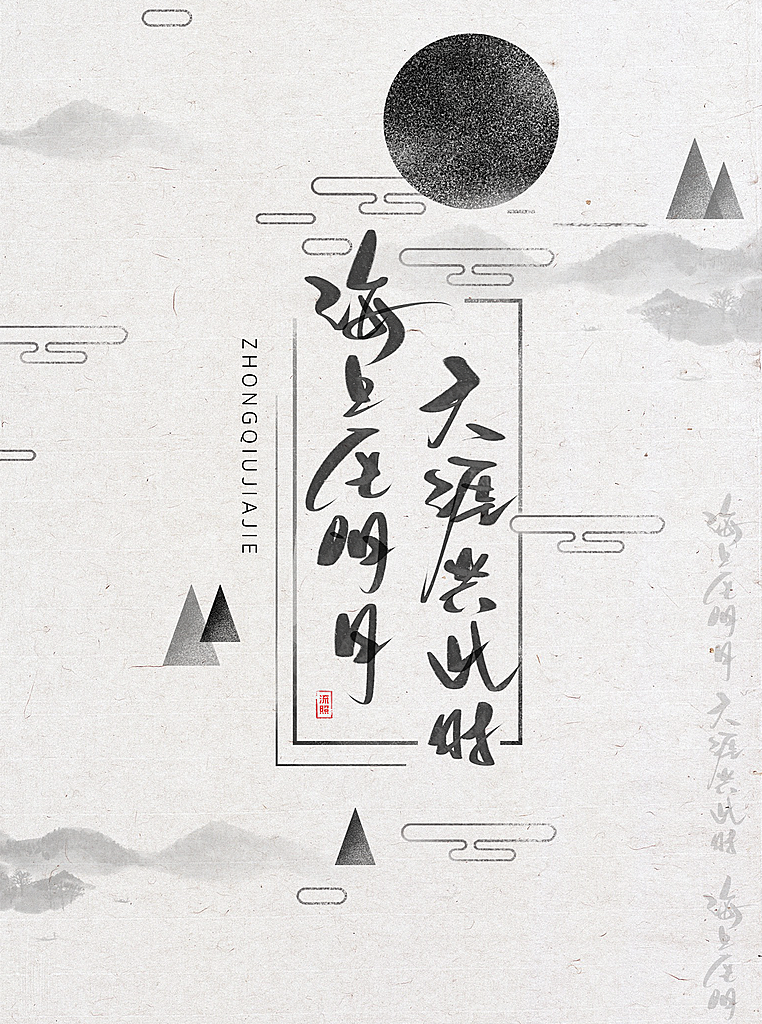 海上生明月
天涯共此时
ZHONGQIUJIAJIE
流照
海上生明月 天涯共此时 海上生明